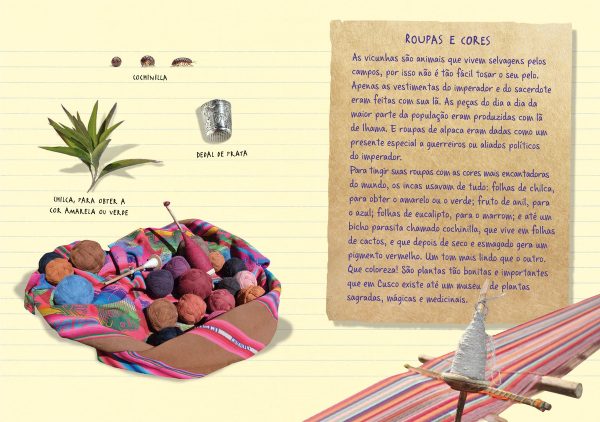 COCHINILLA
DEDAL DE PRATA
CHILCA, PARA OBTER A
COR AMARELA OU VERDE
ROUPAS E CORES
As vicunhas são animais que vivem selvagens pelos
campos, por isso não é tão fácil tosar o seu pelo.
Apenas as vestimentas do imperador e do sacerdote
eram feitas com sua lã. As peças do dia a dia da
maior parte da população eram produzidas com lã
de lhama. E roupas de alpaca eram dadas como um
presente especial a guerreiros ou aliados políticos
do imperador.
Para tingir suas roupas com as cores mais encantadoras
do mundo, os incas usavam de tudo: folhas de chilca,
para obter o amarelo ou o verde; fruto de anil, para
o azul; folhas de eucalipto, para o marrom; e até um
bicho parasita chamado cochinilla, que vive em folhas
de cactos, e que depois de seco e esmagado gera um
pigmento vermelho. Um tom mais lindo que o outro.
Que coloreza! São plantas tão bonitas e importantes
que em Cusco existe até um museu de plantas
sagradas, mágicas e medicinais.